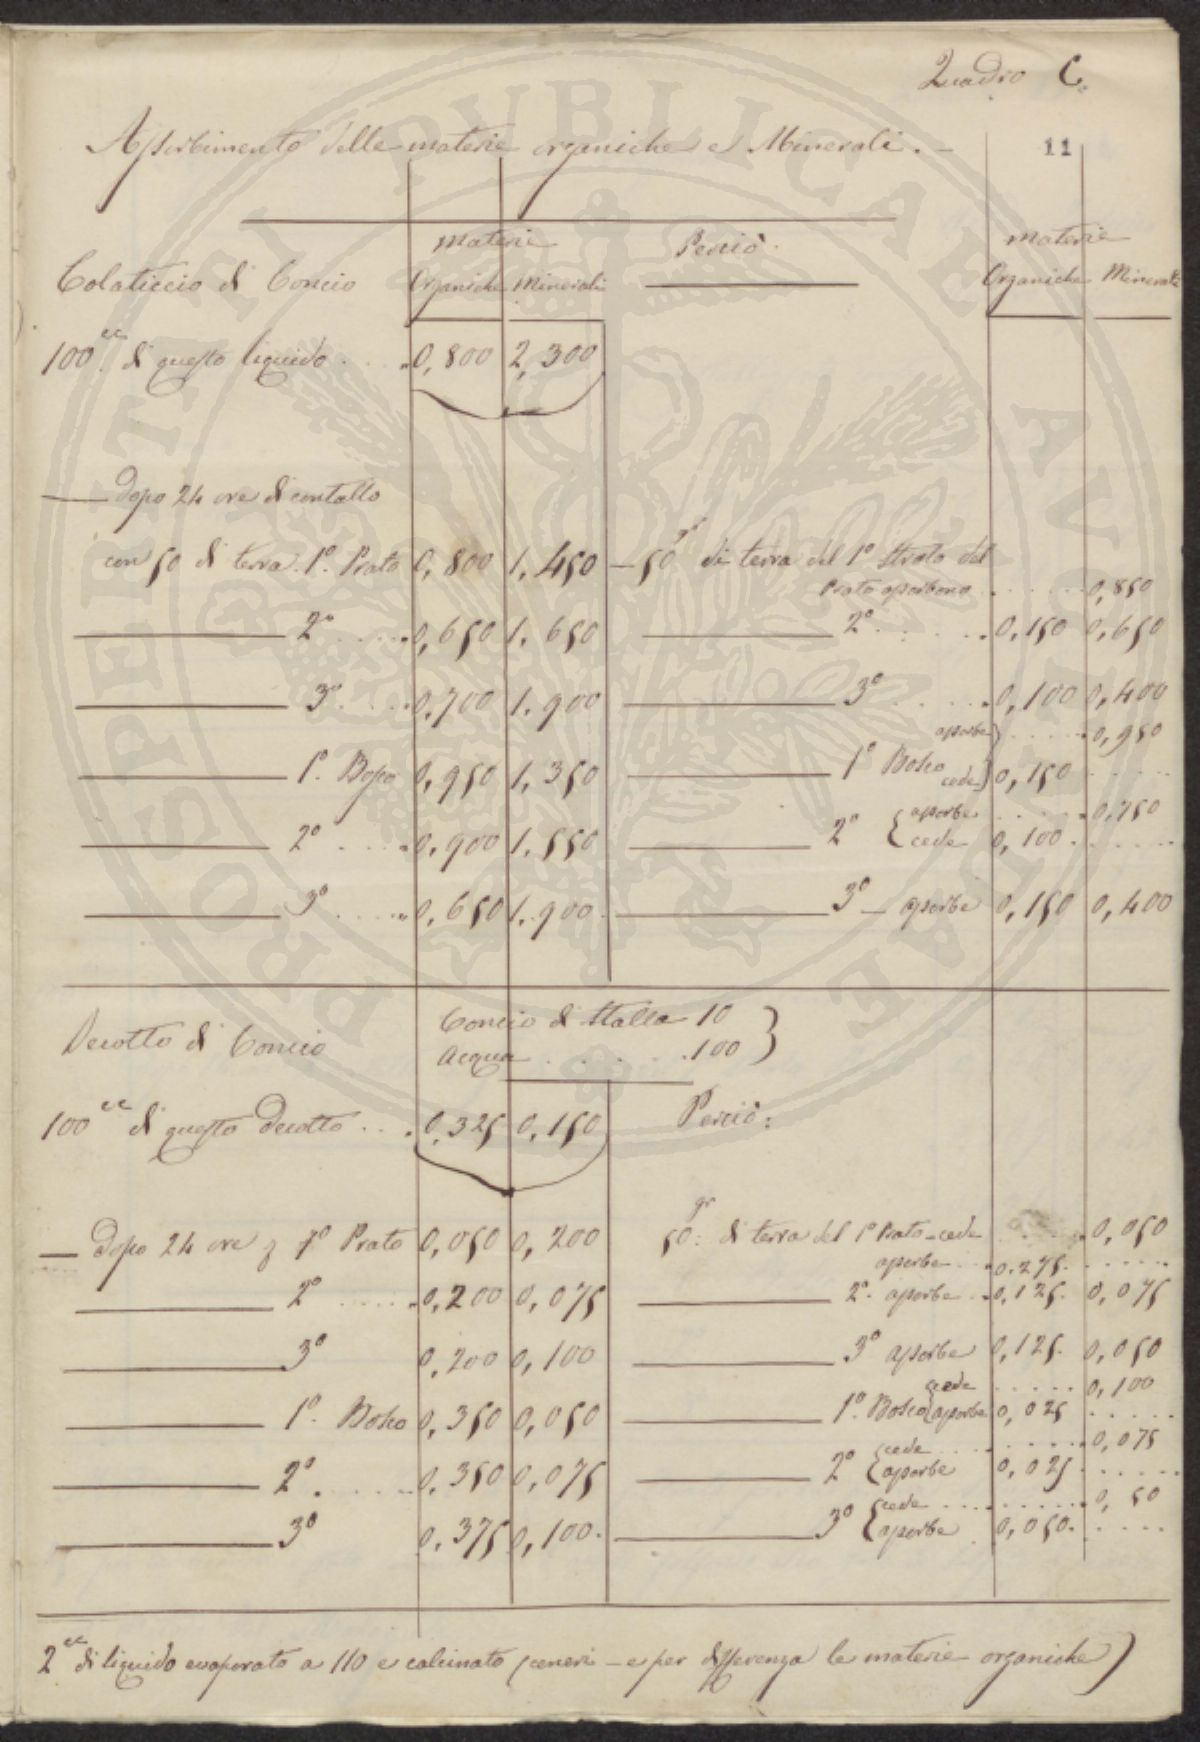 Quadro C.
11
Assorbimento delle materie organiche e Minerali. —
Materie Perciò. Materie
Colaticcio di Concio Organiche Minerali Organiche Minerali
100 cc di questo liquido . . . . 0,800 2,300
— Dopo 24 ore di contatto
con 50 di terra. 1° Prato 0,800 1,450 — 50 gr di terra del 1° Strato del
Prato assorbono . . . . . . 0,850
— 2° . . . . . 0,650 1,650 — 2° . . . . . . 0,150 0,650
— 3° . . . . 0,700 1,900 — 3° . . . . . 0,100 0,400
assorbe} . . . . . . 0,950
— 1° Bosco 0,950 1,350 — 1° Bosco cede} 0,150 . . . . .
{assorbe . . . . . . 0,750
— 2° . . . . . 0,900 1,550 — 2° {cede 0,100 . . . . . .
— 3° . . . . . 0,650 1,900 — 3° — assorbe 0,150 0,400
Decotto di Concio
Concio di Stalla 10 }
Acqua . . . . . . 100 }
100 cc di questo decotto . . . . 0,325 0,150 Perciò:
— Dopo 24 ore 1° Prato 0,050 0,200 50 gr: di terra del 1° Prato - cede . . . . . 0,050
assorbe . . . 0,275 . . . . . .
— 2° . . . . . 0,200 0,075 — 2° assorbe . . 0,125. 0,075
— 3° 0,200 0,100 — 3° assorbe 0,125. 0,050
{cede . . . . . 0,100
— 1° Bosco 0,350 0,050 — 1° Bosco {assorbe 0,025 . . . . .
{cede . . . . . . . . 0,075
— 2°. . . . . . 0,350 0,075 — 2° {assorbe 0,025 . . . . . .
{cede . . . . . . . . . 0, 50
— 3° 0,375 0,100. — 3° {assorbe 0,050. . . . .
2 cc di liquido evaporato a 110 e calcinato (ceneri — e per differenza le materie organiche)
PROSPERITATI PUBLICAE AUGENDAE